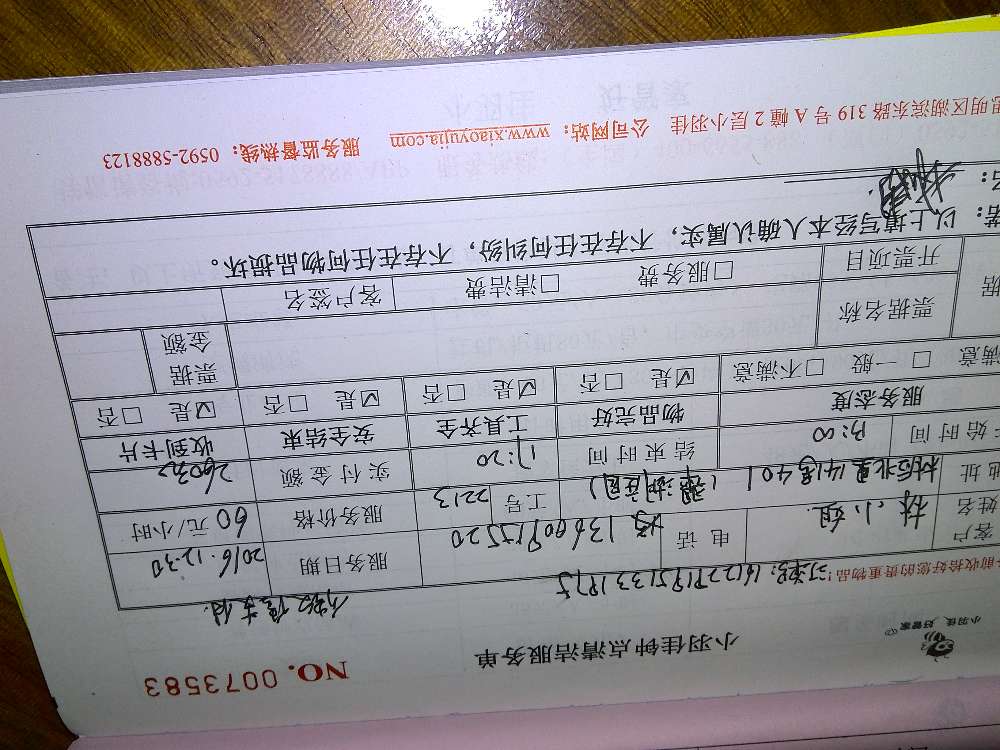 小羽佳 好管家
小羽佳钟点清洁服务单
NO. 0073583
前收拾好您的贵重物品!
客户姓名 林小姐 电话 13600915520 服务日期 2016.12.30
地址 工号 2213 服务价格 60 元/小时
始时间 13:00 结束时间 17:20 实付金额 260元
服务态度 物品完好 工具齐全 安全结束 收到卡片
满意 □一般 □不满意 ☑是 □否 ☑是 □否 ☑是 □否 ☑是 □否
据 票据名称 票据金额
开票项目 □服务费 □清洁费 客户签名
以上填写经本人确认属实,不存在任何纠纷,不存在任何物品损坏。
明区湖滨东路 319 号 A 幢 2 层小羽佳 公司网站:www.xiaoyujia.com 服务监督热线:0592-5888123